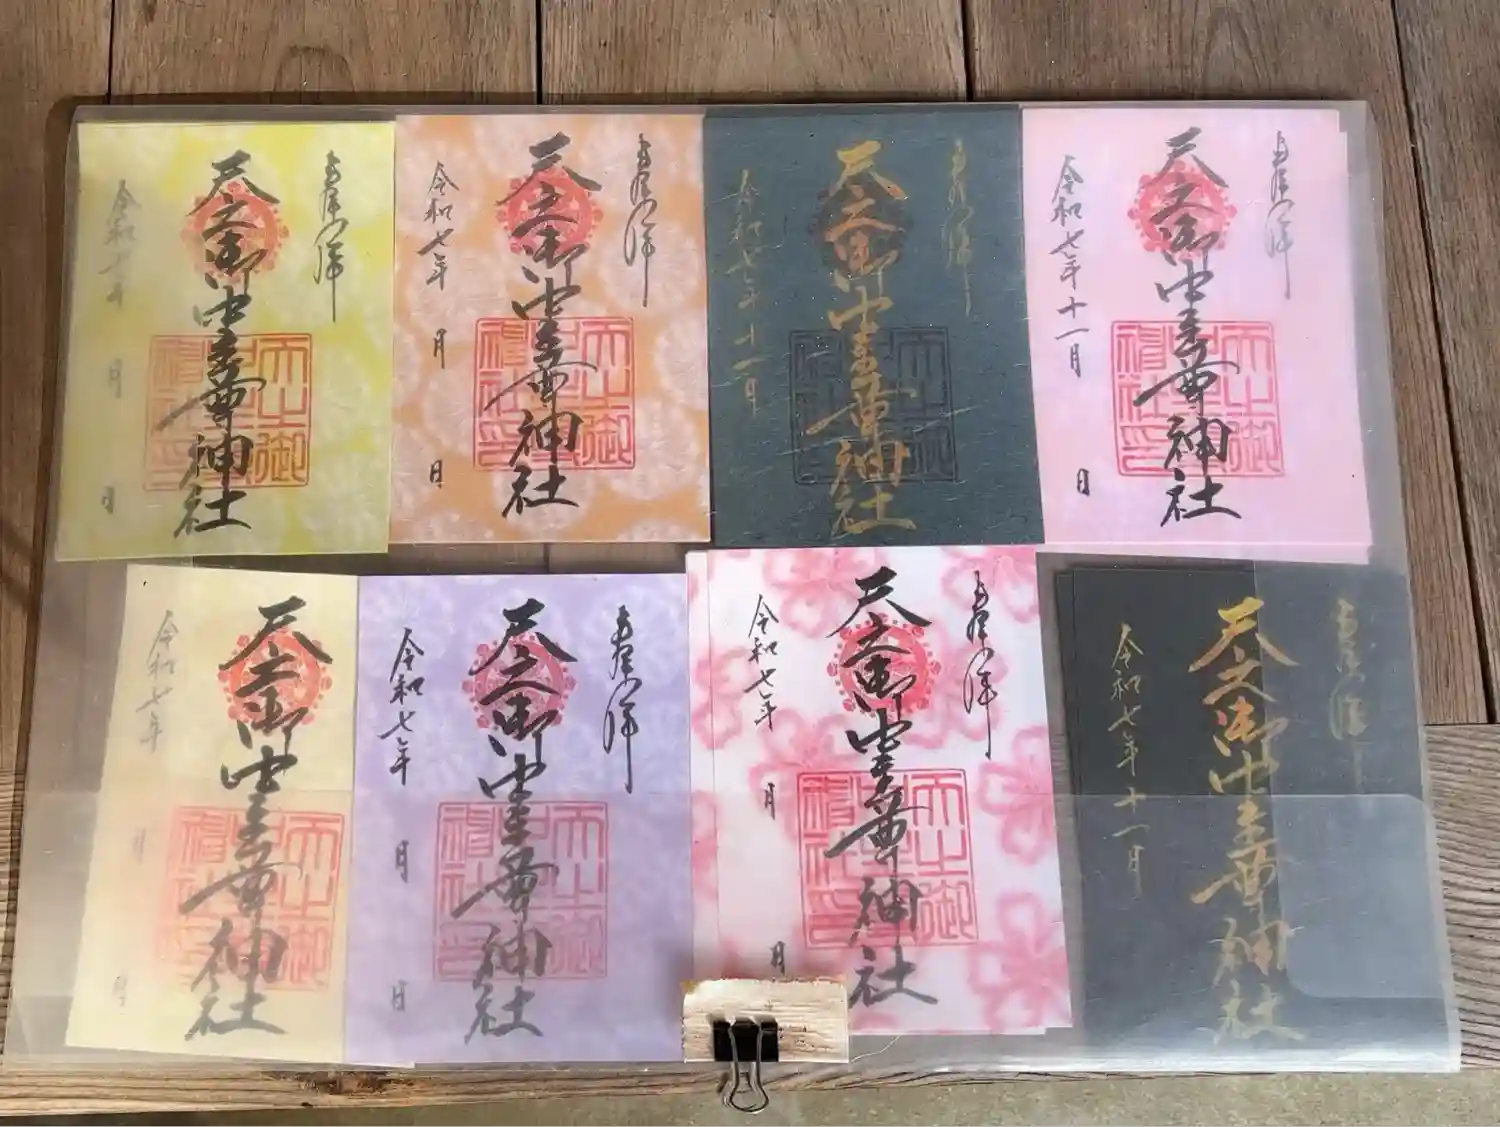 奉拝
天之御中主尊神社
令和七年 月 日
奉拝
天之御中主尊神社
令和七年 月 日
奉拝
天之御中主尊神社
令和七年十一月
奉拝
天之御中主尊神社
令和七年十一月 日
奉拝
天之御中主尊神社
令和七年 月 日
奉拝
天之御中主尊神社
令和七年 月 日
奉拝
天之御中主尊神社
令和七年 月 日
奉拝
天之御中主尊神社
令和七年十一月